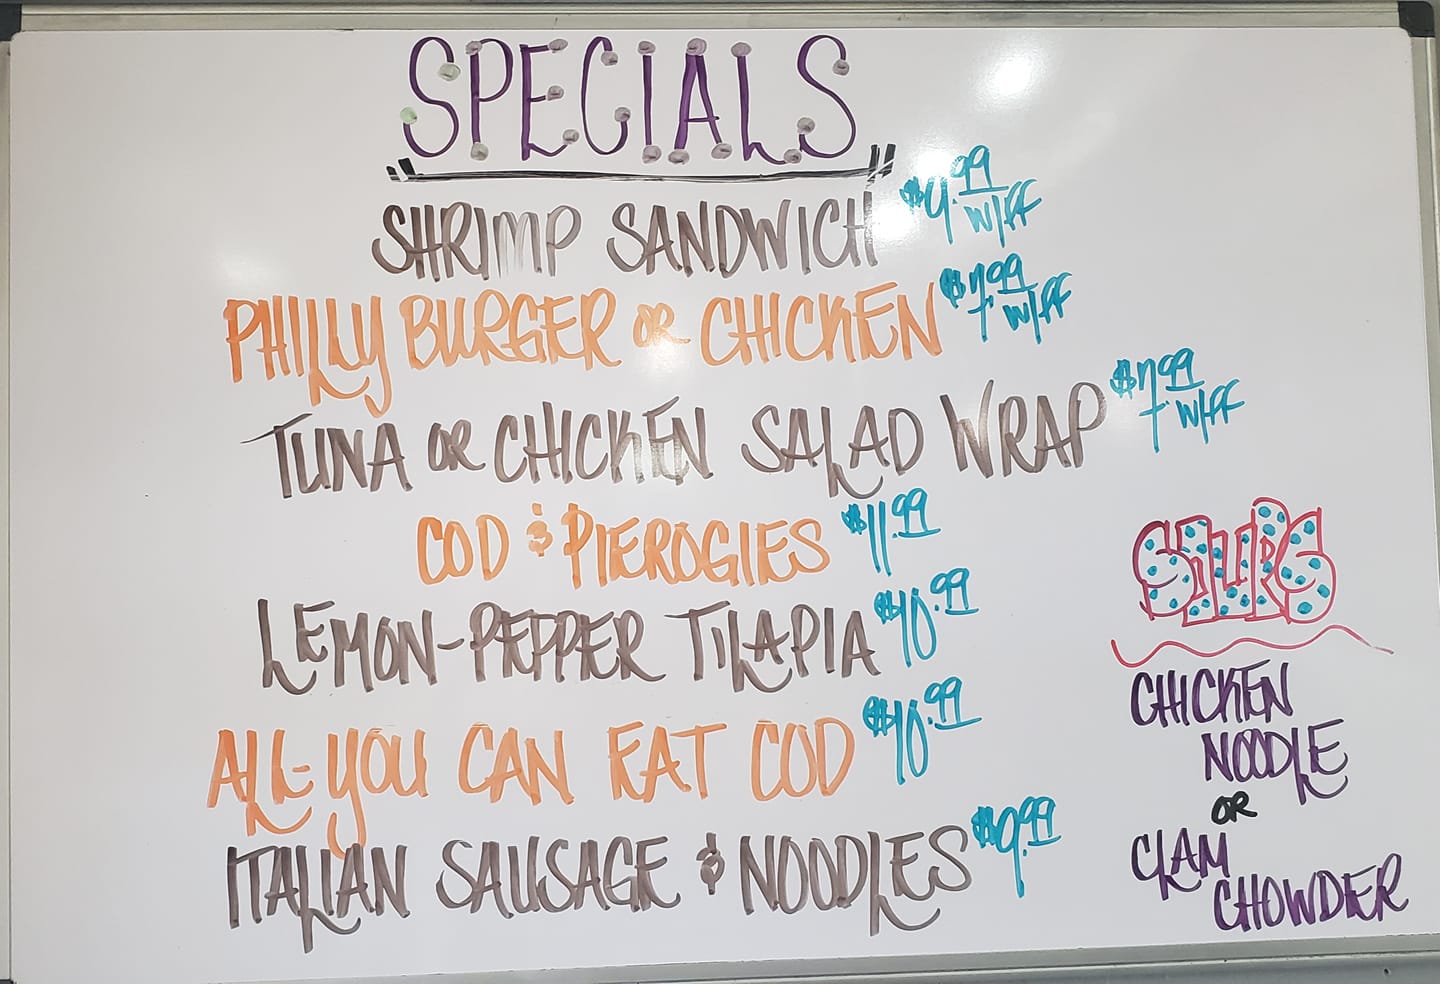 SPECIALS
SHRIMP SANDWICH $9.99 W/FF
PHILLY BURGER OR CHICKEN $7.99 W/FF
TUNA OR CHICKEN SALAD WRAP $7.99 W/FF
COD & PIEROGIES $11.99
LEMON-PEPPER TILAPIA $10.99
ALL-YOU CAN EAT COD $10.99
ITALIAN SAUSAGE & NOODLES $9.99
SOUPS
CHICKEN
NOODLE
OR
CLAM
CHOWDER